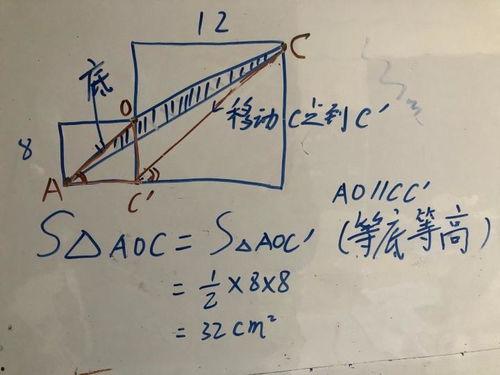 12
C
底
O
8
移动C点到C'
A
C'
AO//CC'
S△AOC = S△AOC' (等底等高)
= 1/2 ×8×8
= 32cm²